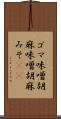 ゴマ味噌胡
麻味噌胡麻
みそ